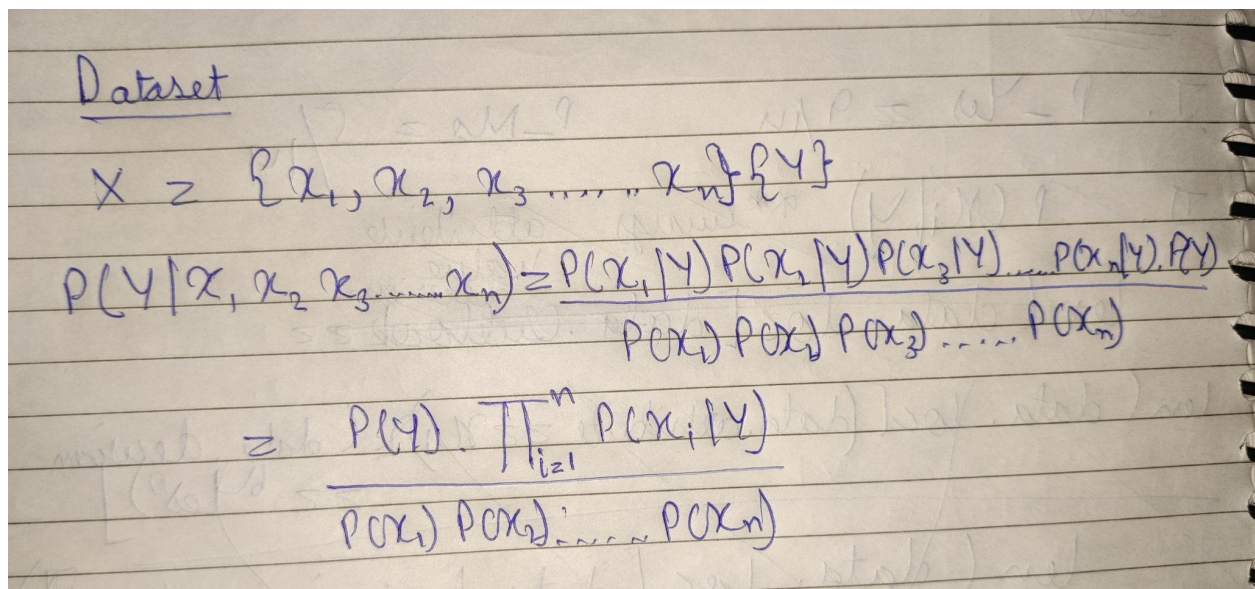 Dataset
X = {x₁, x₂, x₃ ...... xₙ}{Y}
P(Y|x₁ x₂ x₃ ....... xₙ) = P(x₁|Y) P(x₂|Y) P(x₃|Y) ..... P(xₙ|Y). P(Y)
P(x₁) P(x₂) P(x₃) ..... P(xₙ)
= P(Y). ∏ⁿᵢ₌₁ P(xᵢ|Y)
P(x₁) P(x₂) ...... P(xₙ)